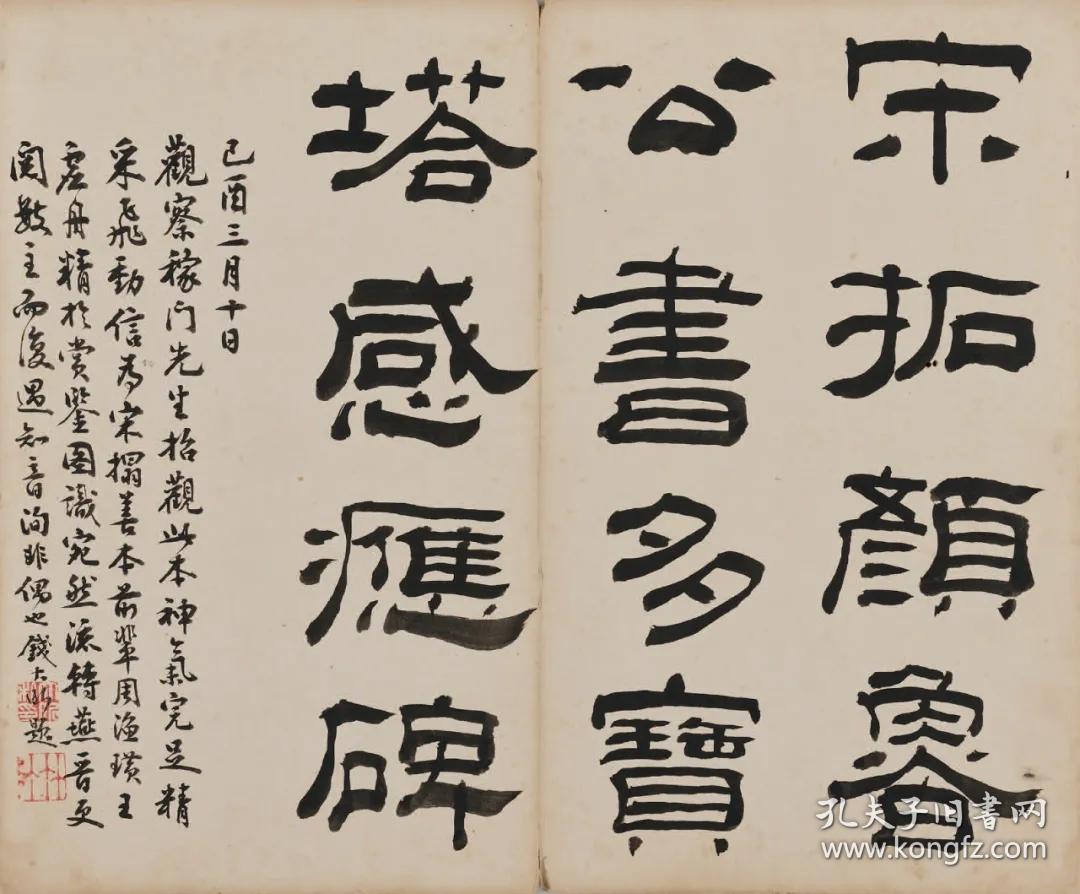 宋拓顏魯
公書多寶
塔感應碑
己酉三月十日
觀察稼门先生招觀此本神氣完足精
采飛動信為宋搨善本前輩周漁璜王
虛舟精於賞鑒圖識宛然流轉燕晋更
閱數主而復遇知音洵非偶也錢大昕題
孔夫子旧书网
www.kongfz.com